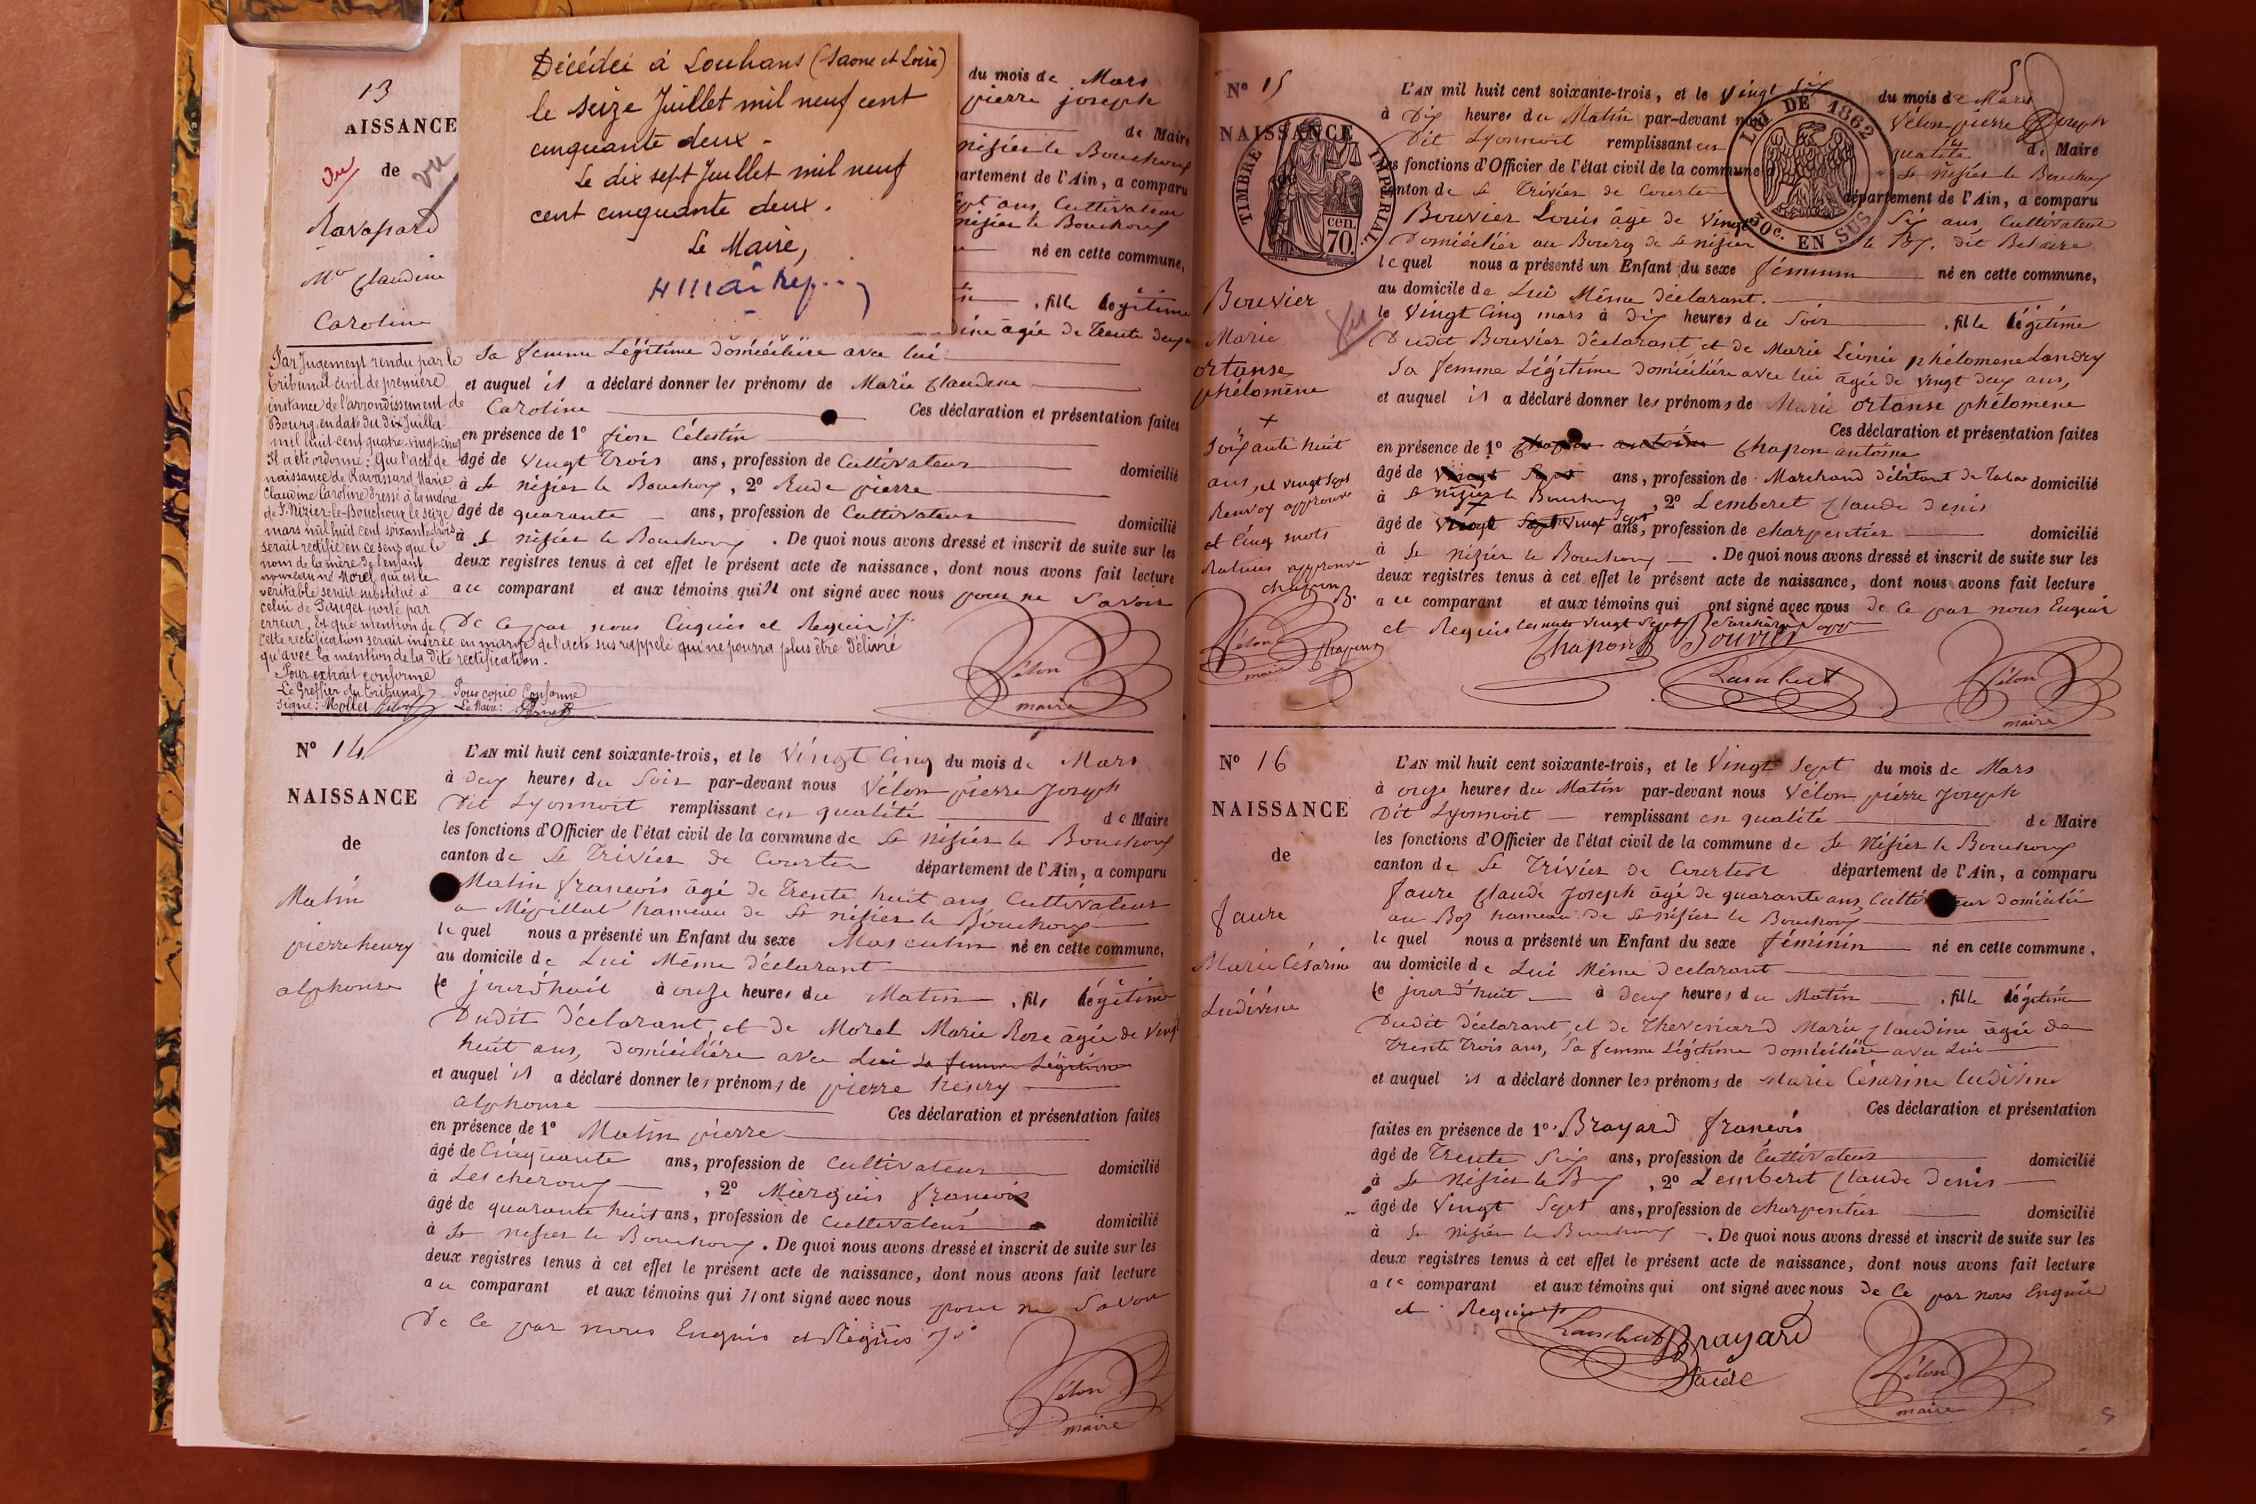 13
AISSANCE
vu
de
vu
Ravassard
Mie Claudine
Caroline
Décédée à Louhans (Saône et Loire)
le seize Juillet mil neuf cent
cinquante deux.
Le dix sept Juillet mil neuf
cent cinquante deux.
Le Maire,
du mois de Mars
pierre joseph
de Maire
nisier le Bouchoux
artement de l'Ain, a comparu
sept ans, Cultivateur
nisier le Bouchoux
né en cette commune,
, fille légitime
dine âgée de Trente deux
Sa femme Légitime domiciliée avec lui
et auquel il a déclaré donner les prénoms de Marie Claudine
Caroline Ces déclaration et présentation faites
en présence de 1° fion Célestin
âgé de vingt Trois ans, profession de Cultivateur domicilié
à St nisier le Bouchoux, 2° Rude pierre
âgé de quarante ans, profession de Cultivateur domicilié
à St nisier le Bouchoux. De quoi nous avons dressé et inscrit de suite sur les
deux registres tenus à cet effet le présent acte de naissance, dont nous avons fait lecture
au comparant et aux témoins qui ont signé avec nous pour ne Savoir
De ce par nous Enquis et Requis
Par Jugement rendu par le
Tribunal civil de première
instance de l'arrondissement de
Bourg, en date du dix Juillet
mil huit cent quatre-vingt-cinq
Il a été ordonné: Que l'acte de
naissance de Ravassard Marie
Claudine Caroline dressé à la mairie
de St Nizier-le-Bouchoux le seize
mars mil huit cent soixante-trois
serait rectifié en ce sens que le
nom de la mère de l'enfant
nouveau né Morel, qui est le
véritable serait substitué à
celui de Pauget porté par
erreur, Et que mention de
cette rectification serait insérée en marge de l'acte sus rappelé qui ne pourra plus être délivré
qu'avec la mention de la dite rectification.
Pour extrait conforme
Le Greffier du tribunal
Signé: Mollet
Pour copie Conforme
Le Maire:
Vélon
maire
N° 14
NAISSANCE
de
Matin
pierre henry
alphonse
L'AN mil huit cent soixante-trois, et le Vingt Cinq du mois de Mars
à deux heures du Soir par-devant nous Vélon pierre Joseph
Dit Lyonnoit remplissant en qualité de Maire
les fonctions d'Officier de l'état civil de la commune de St nisier le Bouchoux
canton de St Trivier de Courtes département de l'Ain, a comparu
Matin francois âgé de Trente huit ans, Cultivateur
a Mépillat hameau de St nisier le Bouchoux
lequel nous a présenté un Enfant du sexe Masculin né en cette commune,
au domicile de Lui Même déclarant
le jourd'huil à onze heures du Matin, fils légitime
Dudit déclarant, et de Morel Marie Rose âgée de Vingt
huit ans, domiciliére avec Lui Sa femme Légitime
et auquel il a déclaré donner les prénoms de pierre henry
alphonse Ces déclaration et présentation faites
en présence de 1° Matin pierre
âgé de Cinquante ans, profession de Cultivateur domicilié
à Lescheroux, 2° Marguin francois
âgé de quarante huit ans, profession de Cultivateur domicilié
à St nisier le Bouchoux. De quoi nous avons dressé et inscrit de suite sur les
deux registres tenus à cet effet le présent acte de naissance, dont nous avons fait lecture
au comparant et aux témoins qui ont signé avec nous pour ne Savoir
De Ce par nous Enquis et Requis
Vélon
maire
N° 15
NAISSANCE
TIMBRE IMPÉRIAL
70 cen.
LOI DE 1862
50c. EN SUS
Bouvier
Marie
ortanse
phélomène
Vu
Soixante huit
ans, et vingt sept
Renvoy approuvé
et Cinq mots
Raturés approuvé
chapon
Vélon
maire
Chapon
5
L'AN mil huit cent soixante-trois, et le Vingt Six du mois de Mars
à Dix heures du Matin par-devant nous Vélon pierre Joseph
Dit Lyonnoit remplissant en qualité de Maire
les fonctions d'Officier de l'état civil de la commune de St nisier le Bouchoux
canton de St Trivier de Courtes département de l'Ain, a comparu
Bouvier Louis âgé de Vingt Six ans, Cultivateur
Domicilier au Bourg de St nisier le Bx, dit Beldere
lequel nous a présenté un Enfant du sexe féminin né en cette commune,
au domicile de Lui Même déclarant.
le Vingt Cinq mars à Dix heures du Soir, fille légitime
Dudit Bouvier déclarant et de Marie Léonie phélomene Landry
Sa femme Légitime domiciliére avec lui âgée de vingt deux ans,
et auquel il a déclaré donner les prénoms de Marie ortanse phélomene
Ces déclaration et présentation faites
en présence de 1° Chapon antoine Chapon antoine
âgé de Vingt Sept ans, profession de Marchand débitant de Tabac domicilié
à St nisier le Bouchoux, 2° Lemberet Claude denis
âgé de Vingt Sept Vingt Sept ans, profession de charpentier domicilié
à St nisier le Bouchoux. De quoi nous avons dressé et inscrit de suite sur les
deux registres tenus à cet effet le présent acte de naissance, dont nous avons fait lecture
au comparant et aux témoins qui ont signé avec nous de ce par nous Enquis
et Requis
Chapon Bouvier
Lambert
Vélon
maire
N° 16
NAISSANCE
de
faure
Marie Césarine
Ludivine
L'AN mil huit cent soixante-trois, et le Vingt Sept du mois de Mars
à onze heures du Matin par-devant nous Vélon pierre Joseph
Dit Lyonnoit remplissant en qualité de Maire
les fonctions d'Officier de l'état civil de la commune de St Nisier le Bouchoux
canton de St Trivier de Courtes département de l'Ain, a comparu
faure Claude Joseph âgé de quarante ans, Cultivateur domicilié
au Boz hameau de St nisier le Bouchoux
lequel nous a présenté un Enfant du sexe féminin né en cette commune,
au domicile de Lui Même declarant
le jourd'huit à deux heures du Matin, fille légitime
Dudit déclarant, et de Thevenard Marie Claudine âgée de
Trente Trois ans, Sa femme Légitime domiciliére avec Lui
et auquel il a déclaré donner les prénoms de Marie Césarine Ludivine
Ces déclaration et présentation
faites en présence de 1° Brayard francois
âgé de Trente Six ans, profession de Cultivateur domicilié
à St Nisier le Bx, 2° Lemberet Claude denis
âgé de Vingt Sept ans, profession de charpentier domicilié
à St nisier le Bouchoux. De quoi nous avons dressé et inscrit de suite sur les
deux registres tenus à cet effet le présent acte de naissance, dont nous avons fait lecture
au comparant et aux témoins qui ont signé avec nous de Ce par nous Enquis
et Requis
Lambert Brayard
Faure
Vélon
maire